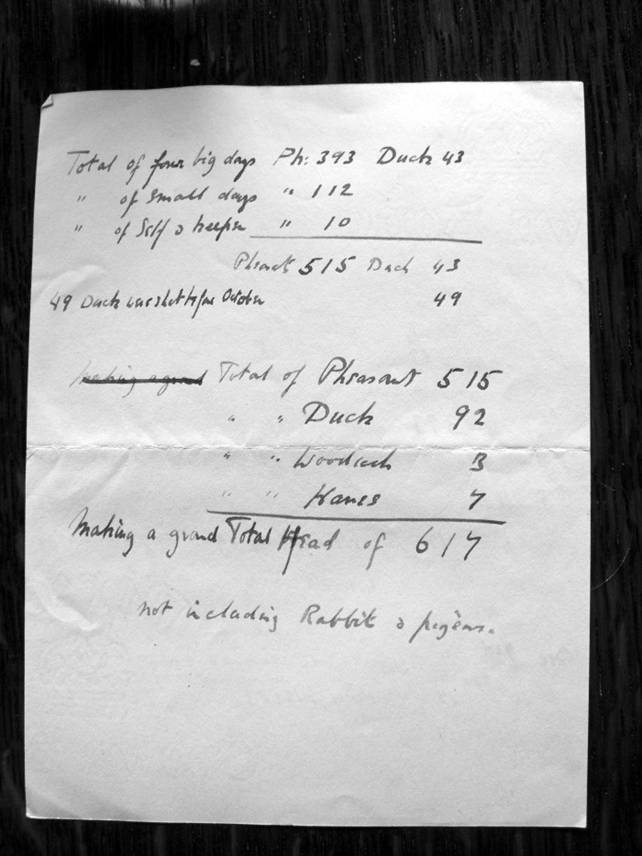 Total of four big days Ph: 393 Duck 43
" of Small days " 112
" of Self & keeper " 10
Pheasant 515 Duck 43
49 Duck were shot before October 49
making a grand Total of Pheasant 515
" " Duck 92
" " Woodcock 3
" " Hares 7
Making a grand Total Head of 617
not including Rabbit & pigeons.